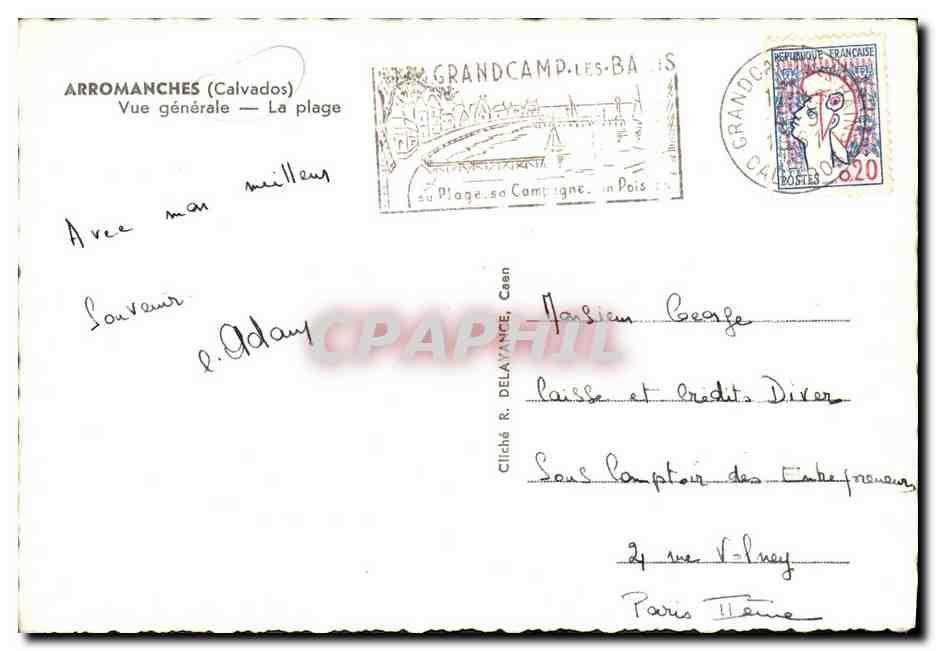 ARROMANCHES (Calvados)
Vue générale — La plage
GRANDCAMP-LES-BAINS
sa Plage. sa Campagne.
GRANDCA
CALVADOS
REPUBLIQUE FRANCAISE
POSTES 0.20
Avec mon meilleur
Souvenir
CPAPHIL
Cliché R. DELAYANCE, Caen
Monsieur George
Caisse et Crédits Diver
Sous Comptoir des Entrepreneurs
21 rue Volney
Paris IIème